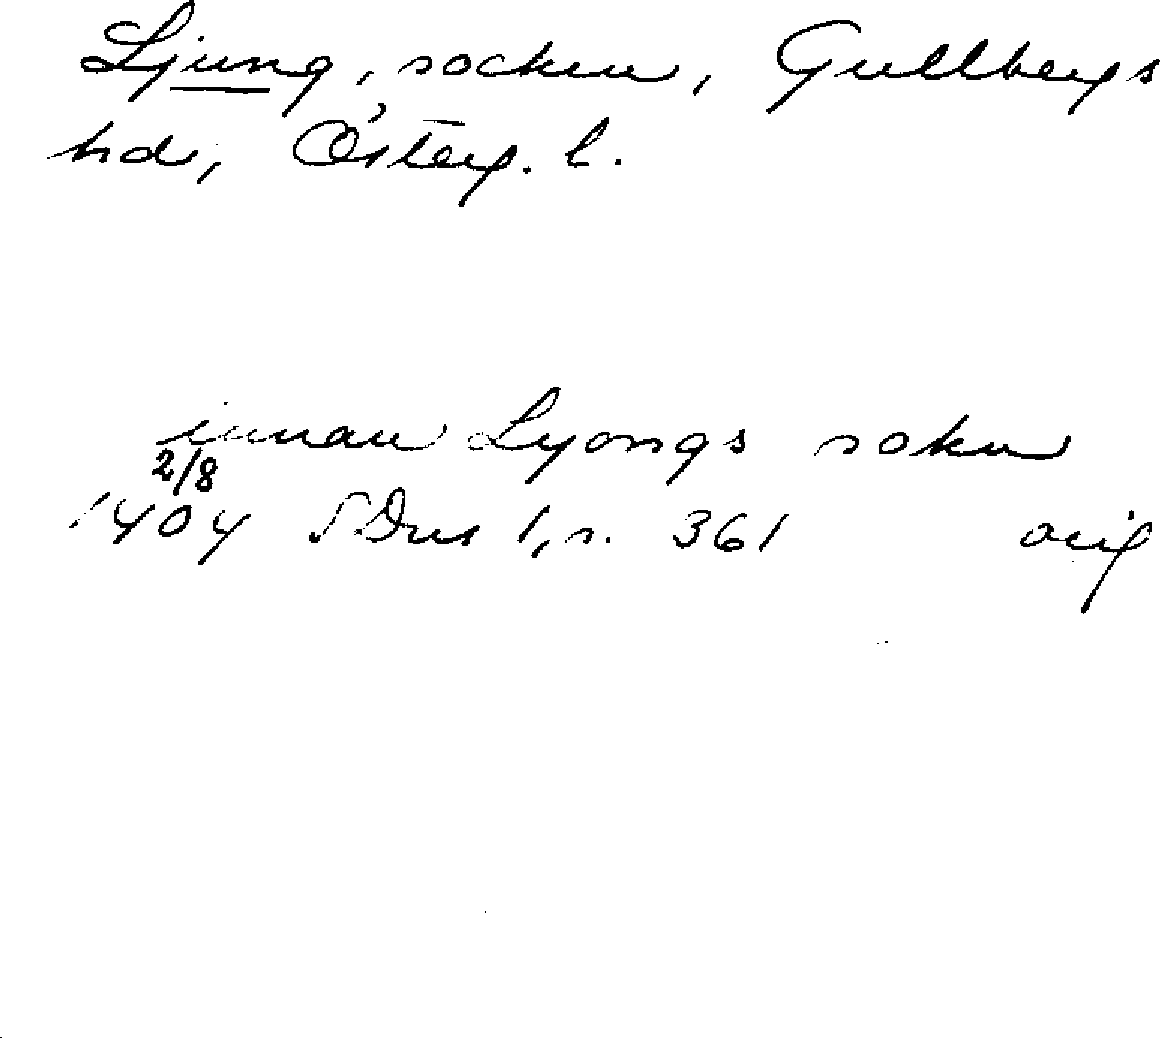 Ljung, socken, Gullbergs
hd, Österg. l.
innan Lyongs sokn
2/8
1404 SDns 1, s. 361 orig